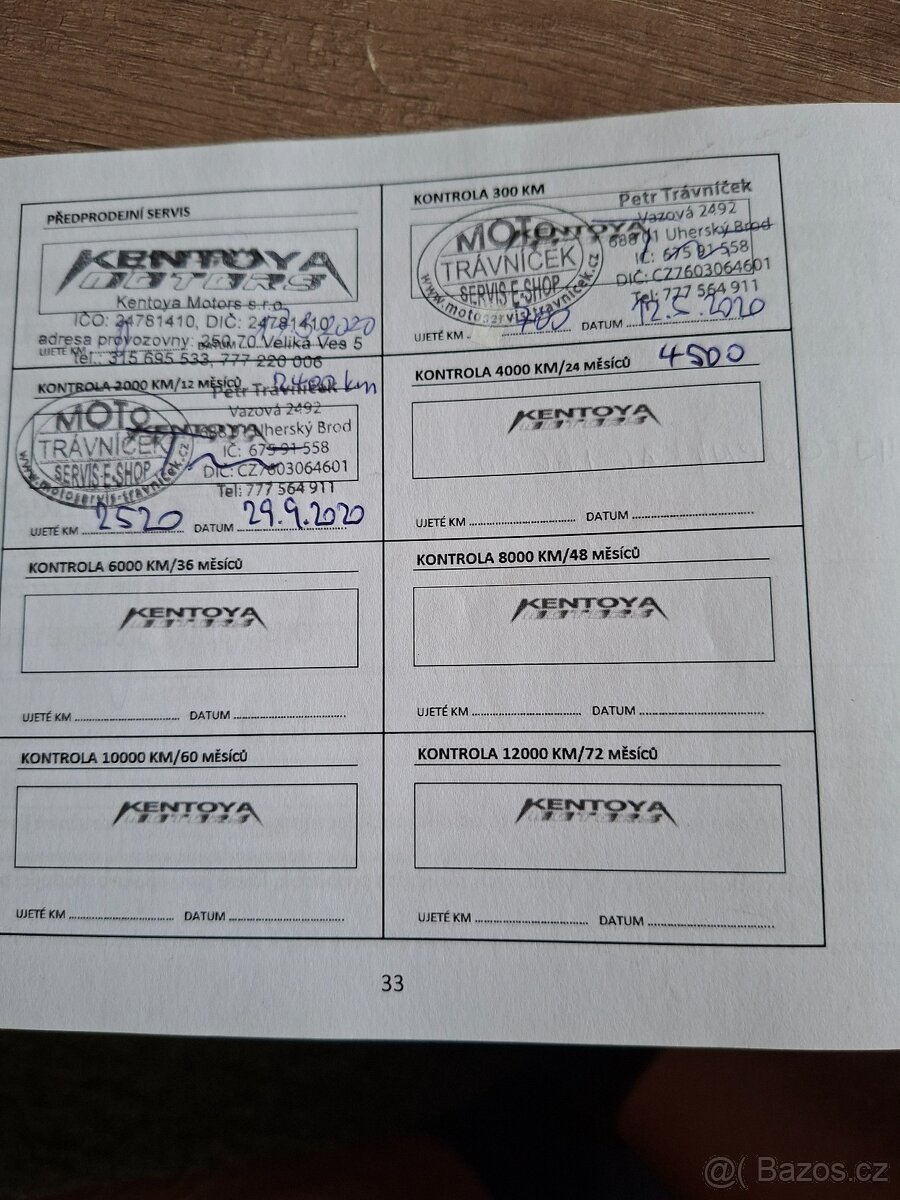 PŘEDPRODEJNÍ SERVIS
KENTOYA
MOTORS
Kentoya Motors s.r.o.
IČO: 24781410, DIČ: 24781410
adresa provozovny: 250 70 Veliká Ves 5
UJETÉ KM
tel.: 315 695 533, 777 220 006
KONTROLA 300 KM
Petr Trávníček
Vazová 2492
688 01 Uherský Brod
IČ: 675 91 558
DIČ: CZ7603064601
Tel: 777 564 911
MOTO
KENTOYA
TRÁVNÍČEK
SERVIS E-SHOP
www.motoservis-travnicek.cz
UJETÉ KM 400 DATUM 12.5.2020
KONTROLA 2000 KM/12 MĚSÍCŮ 2400 km
Petr Trávníček
Vazová 2492
Uherský Brod
IČ: 675 91 558
DIČ: CZ7603064601
Tel: 777 564 911
MOTO
KENTOYA
TRÁVNÍČEK
SERVIS E-SHOP
www.motoservis-travnicek.cz
UJETÉ KM 2520 DATUM 29.9.2020
KONTROLA 4000 KM/24 MĚSÍCŮ 4500
KENTOYA
MOTORS
UJETÉ KM DATUM
KONTROLA 6000 KM/36 MĚSÍCŮ
KENTOYA
MOTORS
UJETÉ KM DATUM
KONTROLA 8000 KM/48 MĚSÍCŮ
KENTOYA
MOTORS
UJETÉ KM DATUM
KONTROLA 10000 KM/60 MĚSÍCŮ
KENTOYA
MOTORS
UJETÉ KM DATUM
KONTROLA 12000 KM/72 MĚSÍCŮ
KENTOYA
MOTORS
UJETÉ KM DATUM
33
@( Bazos.cz